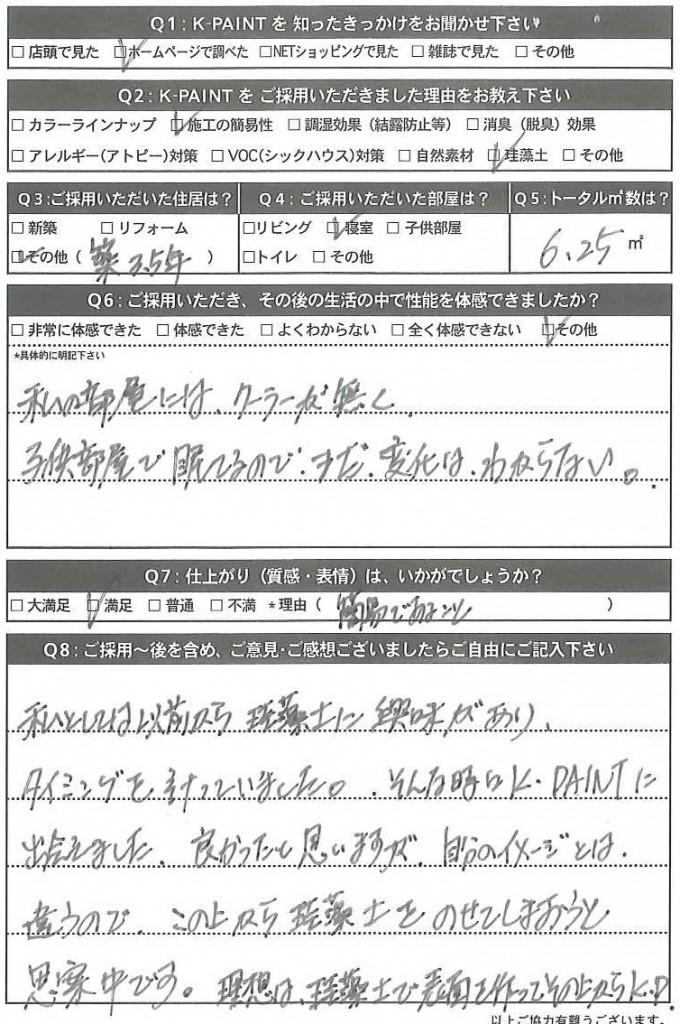 Q1：K-PAINTを 知ったきっかけをお聞かせ下さい
□店頭で見た ☑ホームページで調べた □NETショッピングで見た □雑誌で見た □その他
Q2：K-PAINTを ご採用いただきました理由をお教え下さい
□カラーラインナップ ☑施工の簡易性 □調湿効果（結露防止等） □消臭（脱臭）効果
□アレルギー(アトピー)対策 □VOC(シックハウス)対策 □自然素材 ☑珪藻土 □その他
Q3：ご採用いただいた住居は？
□新築 □リフォーム
☑その他（築35年）
Q4：ご採用いただいた部屋は？
□リビング ☑寝室 □子供部屋
□トイレ □その他
Q5：トータル㎡数は？
6.25㎡
Q6：ご採用いただき、その後の生活の中で性能を体感できましたか？
□非常に体感できた □体感できた □よくわからない □全く体感できない ☑その他
*具体的に明記下さい
私の部屋には、クーラーが無く、
子供部屋で眠てるので、まだ、変化は、わからない。
Q7：仕上がり（質感・表情）は、いかがでしょうか？
□大満足 ☑満足 □普通 □不満 *理由（簡易であること）
Q8：ご採用～後を含め、ご意見・ご感想ございましたらご自由にご記入下さい
私としては以前から珪藻土に興味があり、
タイミングを待っていました。そんな時にK・PAINTに
出会えました。良かったと思いますが、自分のイメージとは、
違うので、この上から珪藻土をのせてしまおうと
思案中です。理想は、珪藻土で表面を作ってその上からK・P.
以上ご協力有難うございます。